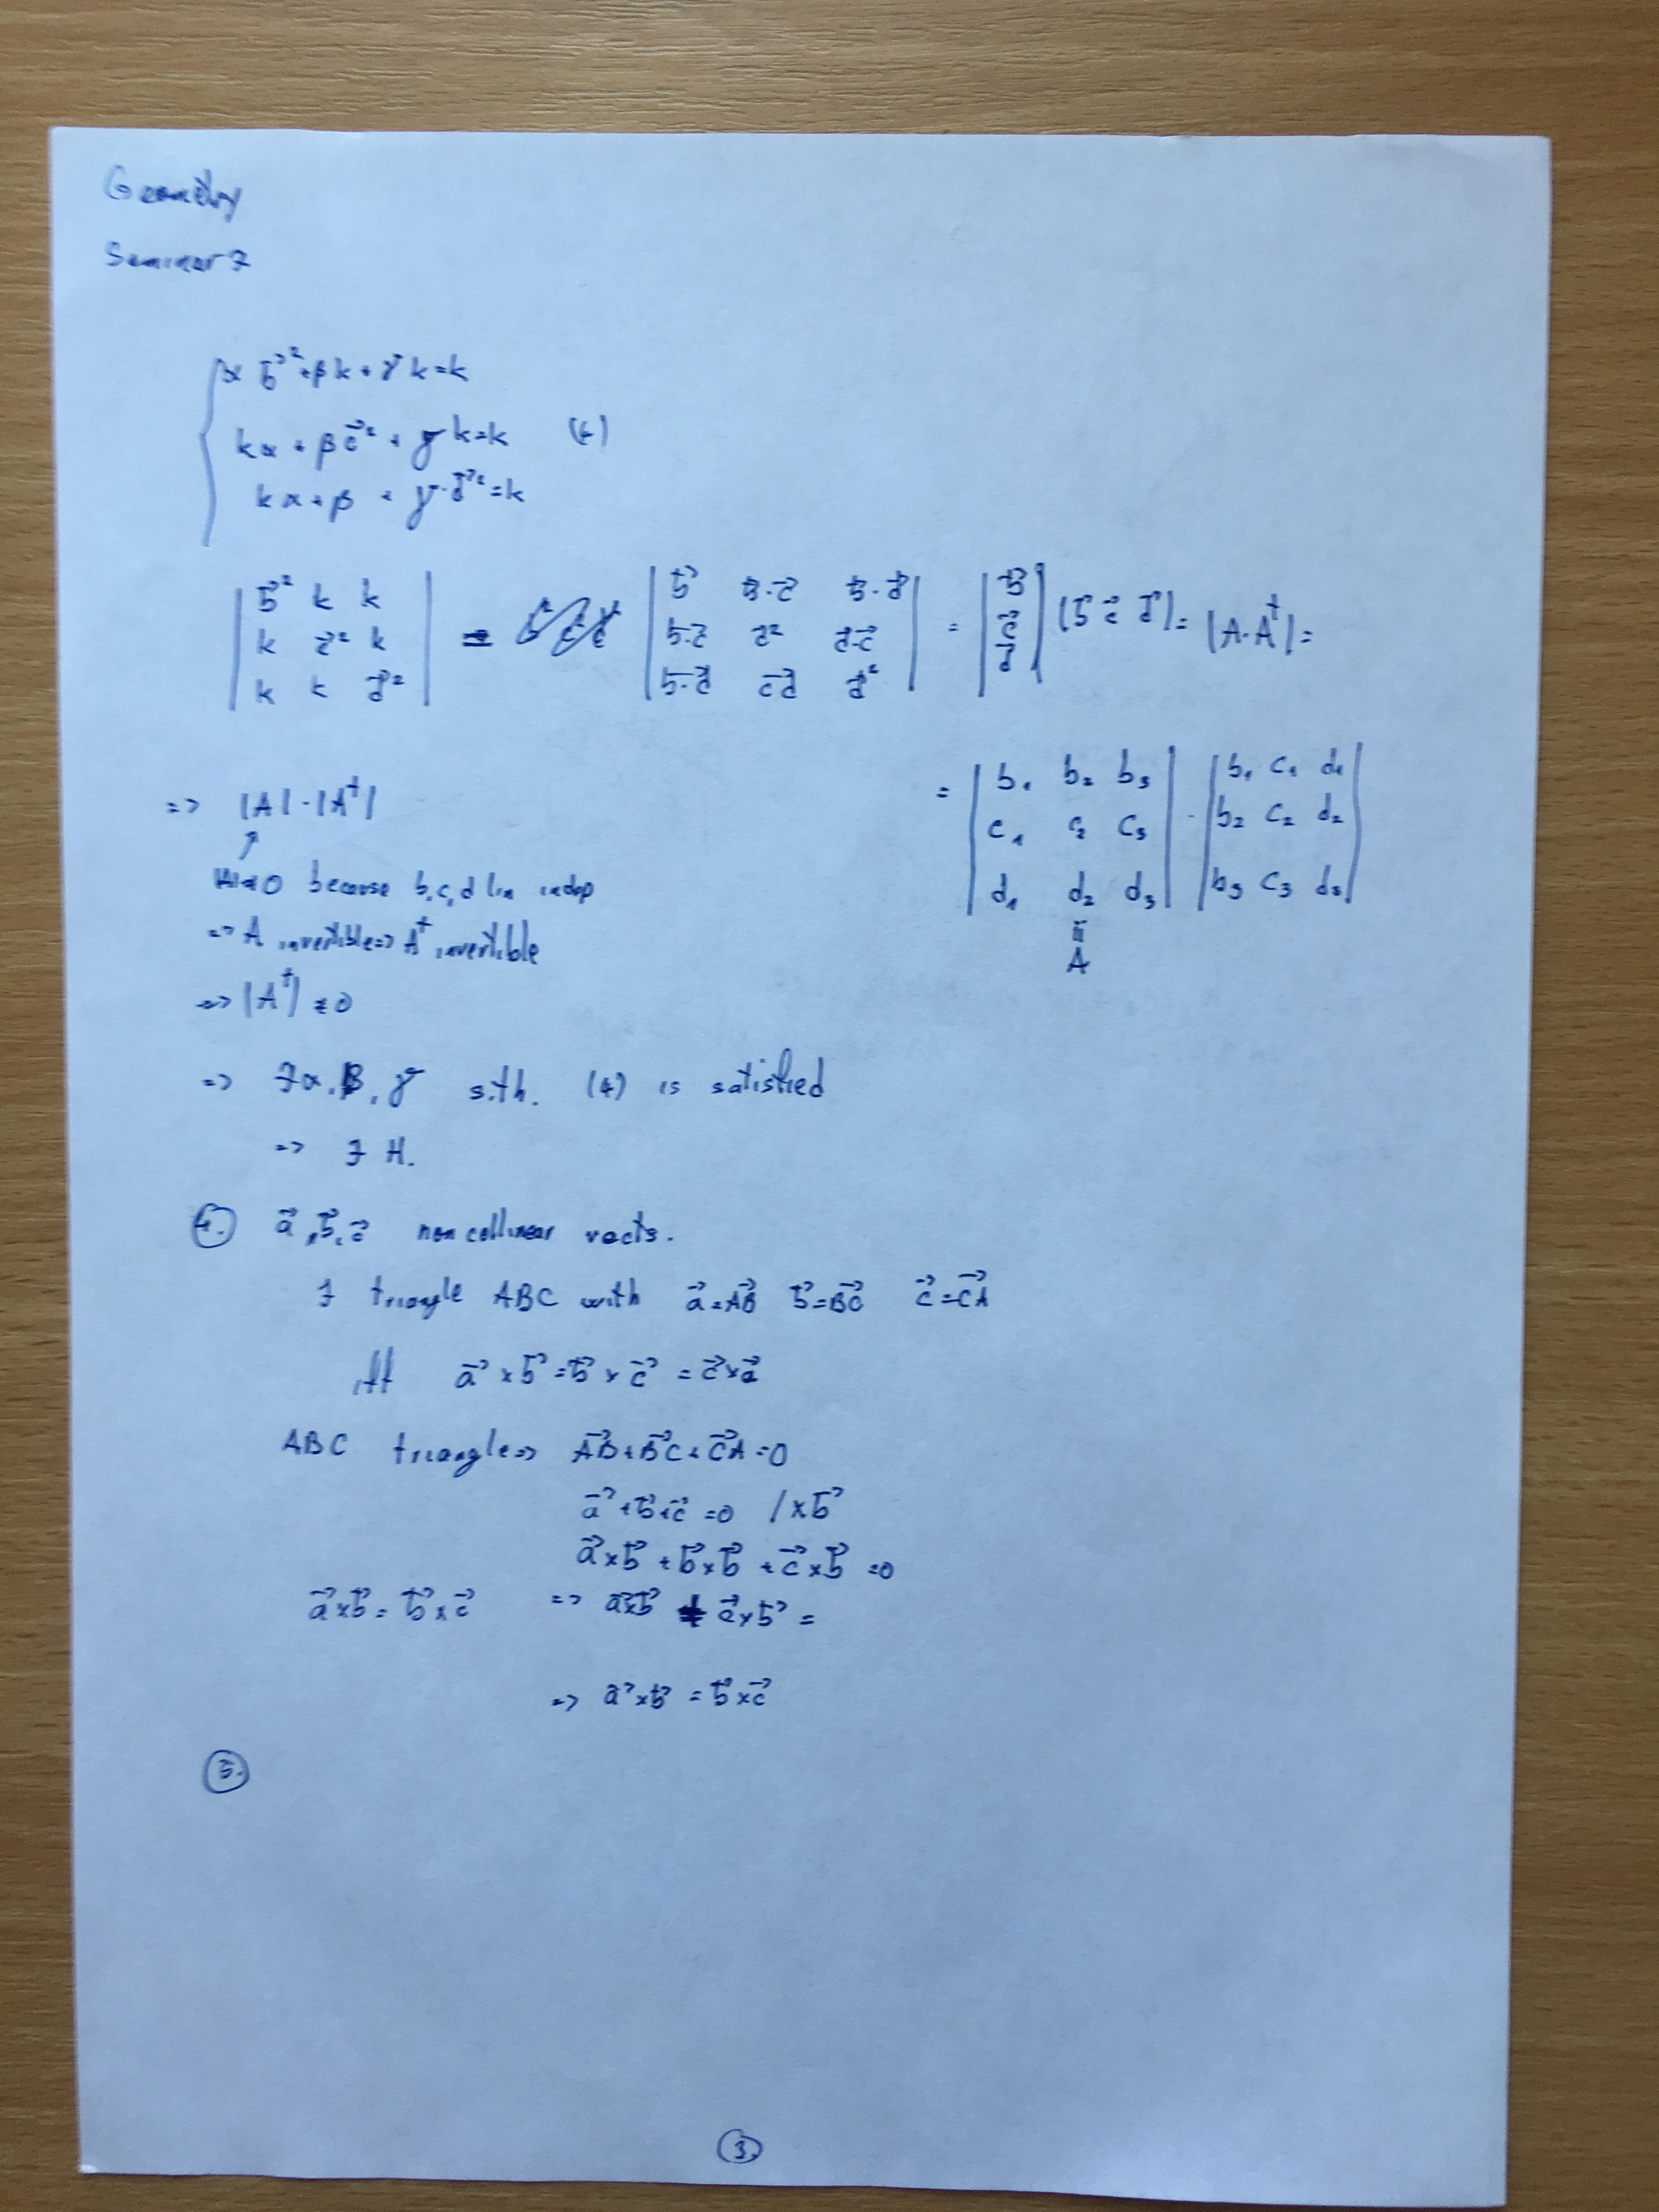 Geometry
Seminar 7
α b⃗² + βk + γk = k
kα + βc⃗² + γk = k (4)
kα + β + γ·d⃗² = k
| b⃗² k k | = | b⃗ b⃗·c⃗ b⃗·d⃗ | = | b⃗ | (b⃗ c⃗ d⃗) = |A·Aᵗ| =
| k c⃗² k | | b⃗·c⃗ c⃗² d⃗·c⃗ | | c⃗ |
| k k d⃗² | | b⃗·d⃗ c⃗d⃗ d⃗² | | d⃗ |
= | b₁ b₂ b₃ | · | b₁ c₁ d₁ |
| c₁ c₂ c₃ | | b₂ c₂ d₂ |
| d₁ d₂ d₃ | | b₃ c₃ d₃ |
=
A
=> |A|·|Aᵗ|
↑
≠0 because b,c,d lin indep
=> A invertible => Aᵗ invertible
=> |Aᵗ| ≠ 0
=> ∃ α, β, γ s.th. (4) is satisfied
=> ∃ H.
4. a⃗, b⃗, c⃗ noncollinear vects.
∃ triangle ABC with a⃗ = AB⃗ b⃗ = BC⃗ c⃗ = CA⃗
iff a⃗ × b⃗ = b⃗ × c⃗ = c⃗ × a⃗
ABC triangle => AB⃗ + BC⃗ + CA⃗ = 0
a⃗ + b⃗ + c⃗ = 0 / × b⃗
a⃗ × b⃗ + b⃗ × b⃗ + c⃗ × b⃗ = 0
a⃗ × b⃗ = b⃗ × c⃗ => a⃗ × b⃗ + c⃗ × b⃗ =
=> a⃗ × b⃗ = b⃗ × c⃗
5.
3.